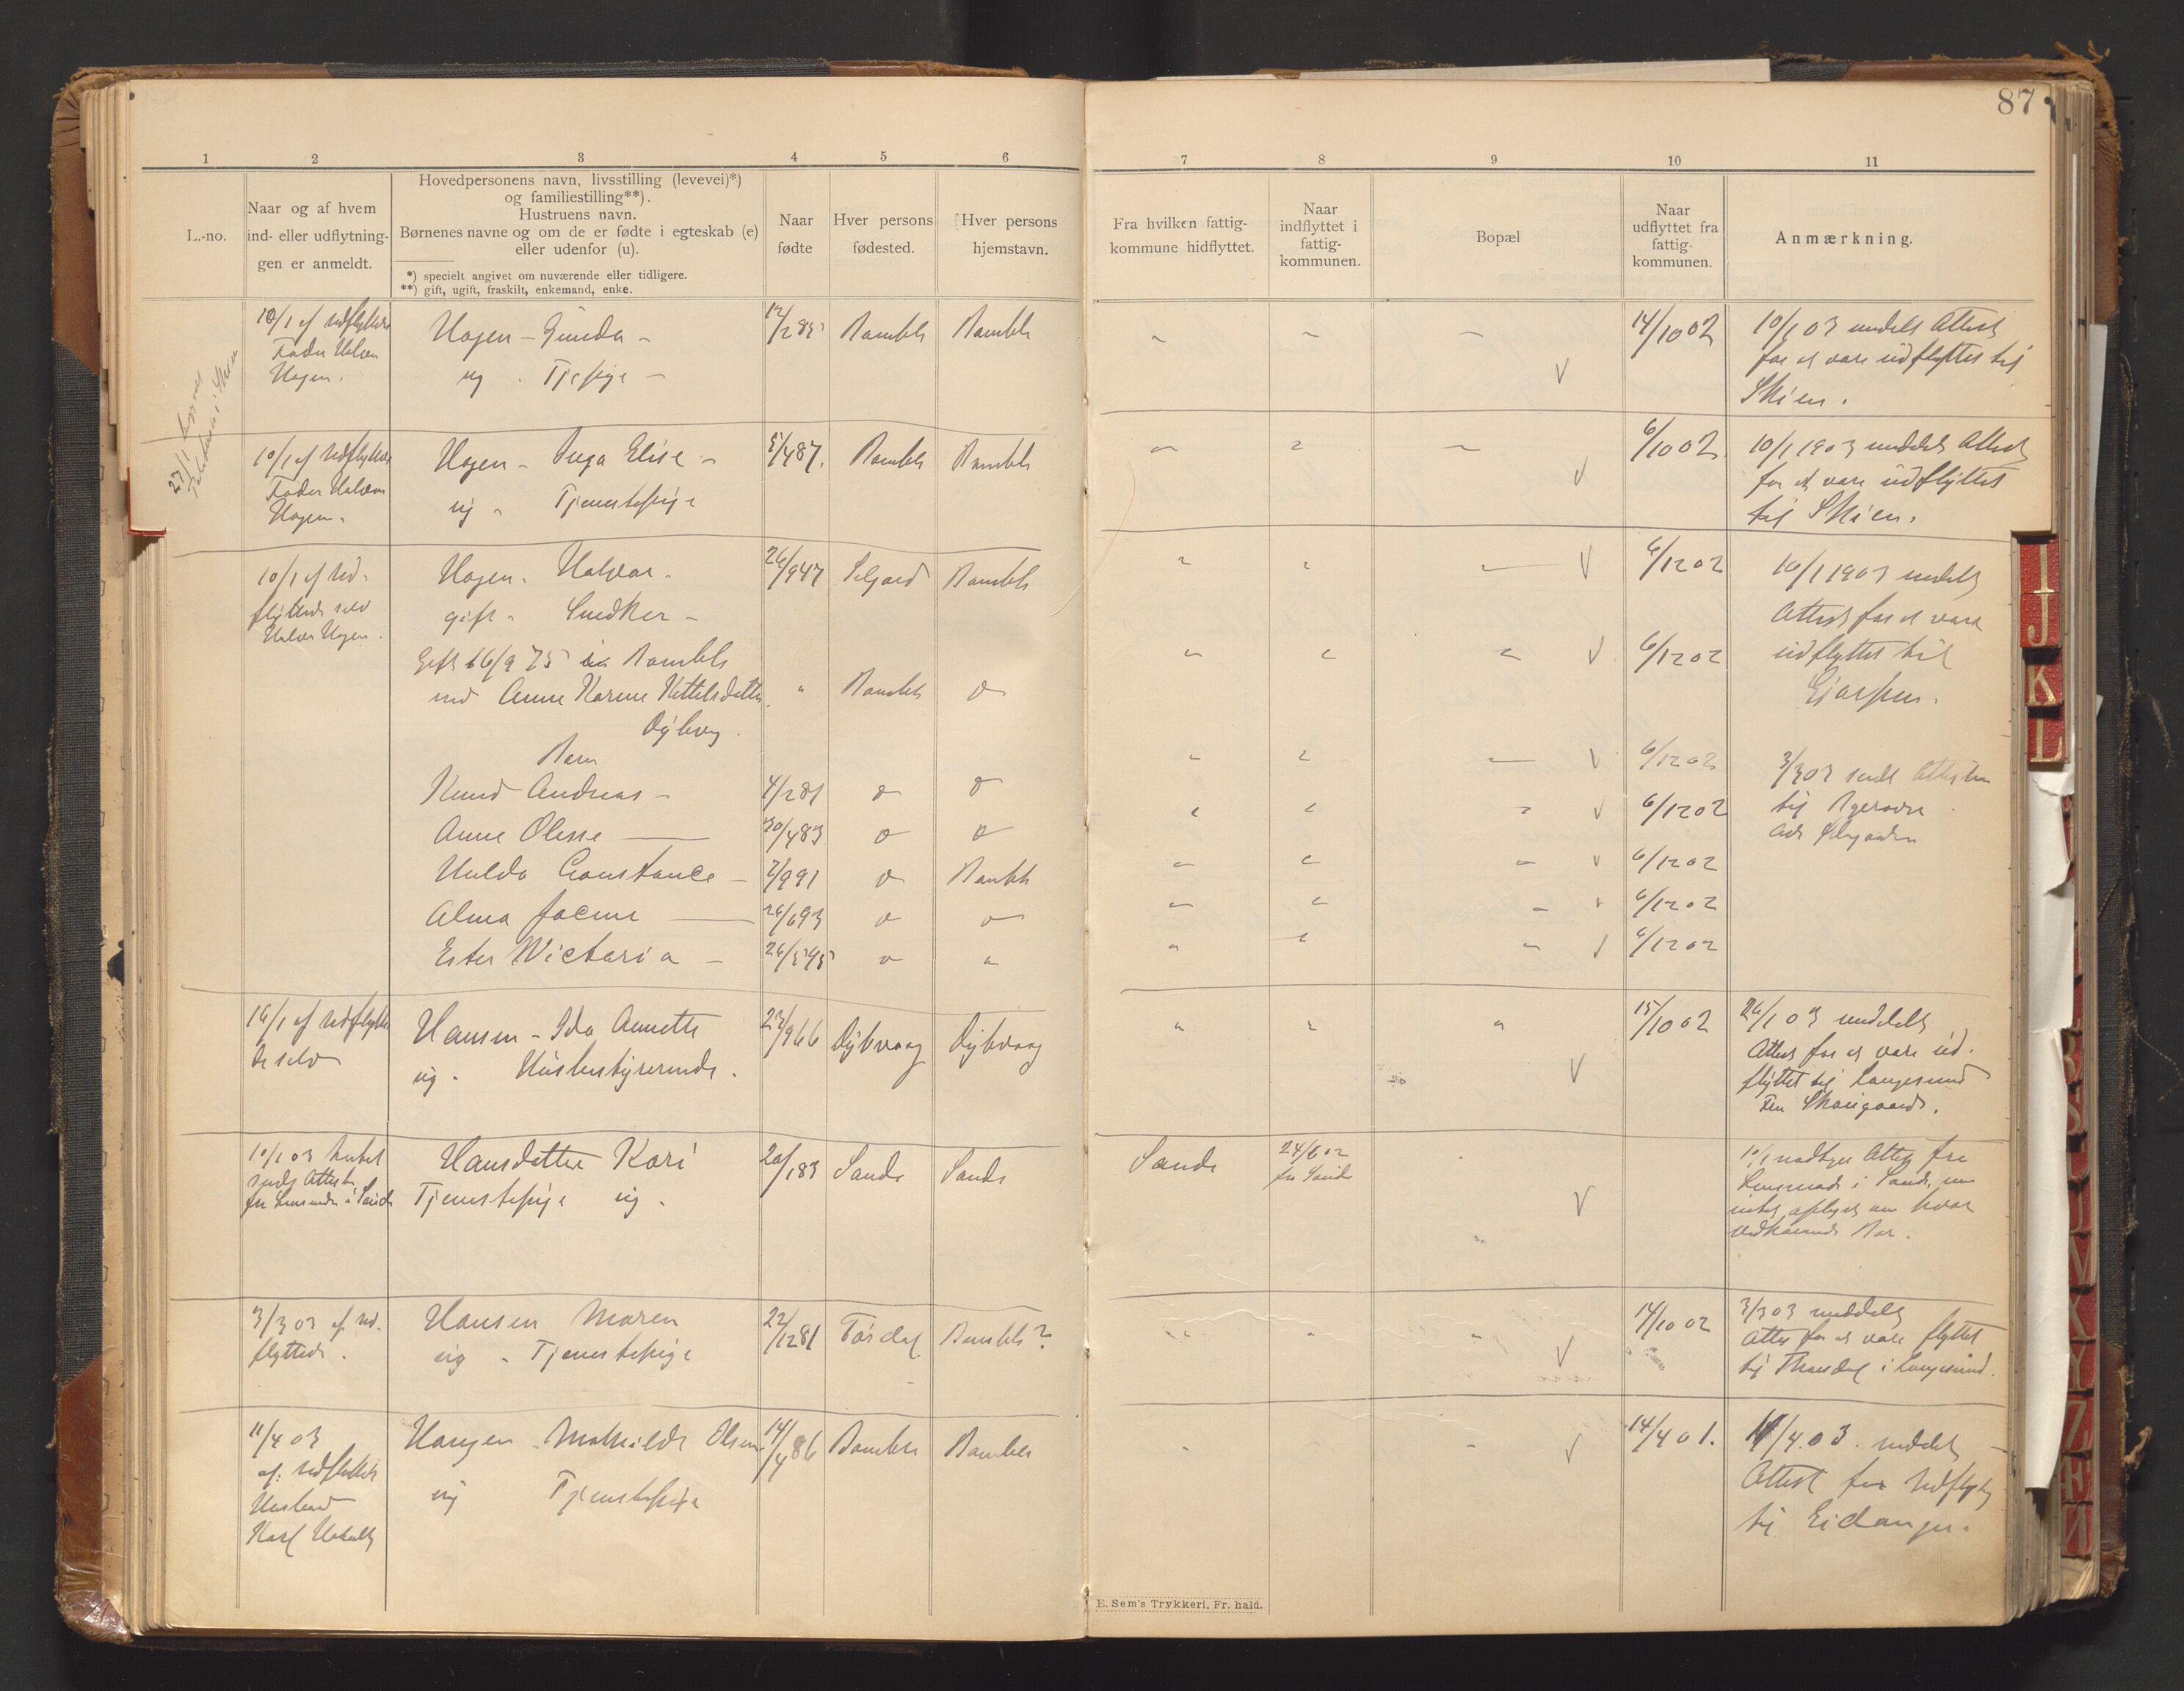 87
1 2 3 4 5 6
7 8 9 10 11
L.-no.
Naar og af hvem
ind- eller udflytnin-
gen er anmeldt.
Hovedpersonens navn, livsstilling (levevei)*)
og familiestilling**).
Hustruens navn.
Børnenes navne og om de er fødte i egteskab (e)
eller udenfor (u).
*) specielt angivet om nuværende eller tidligere.
**) gift, ugift, fraskilt, enkemand, enke.
Naar
fødte
Hver persons
fødested.
Hver persons
hjemstavn.
Fra hvilken fattig-
kommune hidflyttet.
Naar
indflyttet i
fattig-
kommunen.
Bopæl
Naar
udflyttet fra
fattig-
kommunen.
Anmærkning.
10/1 af udflyttedes
Fader Halvor
Hagen.
Hagen - Gunda -
ug . Tj.pige -
12/2 85
Bamble
Bamble
14/10 02
10/1 03 meddelt Attest
for at være udflyttet til
Skien.
27/1
10/1 af udflyttedes
Fader Halvor
Hagen.
Hagen - Inga Elise -
ug - Tjenestepige
5/4 87.
Bamble
Bamble
6/10 02
10/1 1903 meddelt Attest
for at være udflyttet
til Skien.
10/1 af ud-
flyttede selv
Halvor Hagen.
Hagen. Halvor.
gift - Snedker -
Gift 16/9 75 i Bamble
med Anne Karine Kittelsdatter
Dybvig.
Barn
Knud Andreas -
Anne Olesse
Hulda Constance -
Alma Jocine
Ester Victoria -
26/9 47
4/2 81
30/4 83
7/9 91
26/6 93
26/5 95
Seljord
Bamble
Bamble
Bamble
6/12 02
6/12 02
6/12 02
6/12 02
6/12 02
6/12 02
6/12 02
10/1 1903 meddelt
Attest for at være
udflyttet til
Gjerpen.
3/3 03 sendt Attesten
til
16/1 af udflytte
de selv
Hansen - Ida Annette
ug. Husbestyrerinde.
23/9 66
Dybvaag
Dybvaag
15/10 02
26/1 03 meddelt
Attest for at være ud-
flyttet til Langesund
Fru Skougaard.
10/1 03
Attest
Hansdatter Kari
Tjenestepige ug.
20/1 83
Sande
Sande
Sande
24/6 02
fra Sande
10/1 modtaget Attest fra
Lensmand i Sande, men
intet oplyst om hvor
vedkommende Bor.
3/3 03 af ud-
flyttede.
Hansen Maren
ug - Tjenestepige
22/12 81
Tørdal
Bamble?
14/10 02
3/3 03 meddelt
Attest for at være flyttet
til i Langesund.
11/4 03
af udflyttede
Husbond
Karl
Haugen - Mathilde Olsen
ug Tjenestepige
14/4 86
Bamble
Bamble
14/4 01.
11/4.03. meddelt
Attest for udflytg
til Eidanger.
E. Sem's Trykkeri, Fr. hald.
I
J
K
L